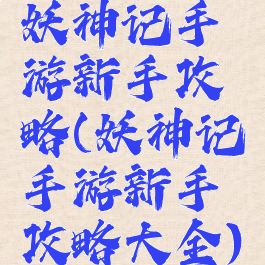 妖神记手
游新手攻
略(妖神记
手游新手
攻略大全)